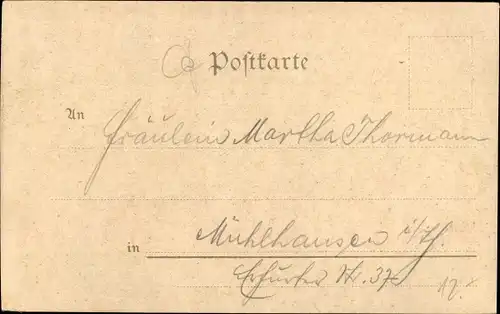 Postkarte
An Fräulein Martha Thormann
in Mühlhausen i/Th.
Erfurter Str. 37